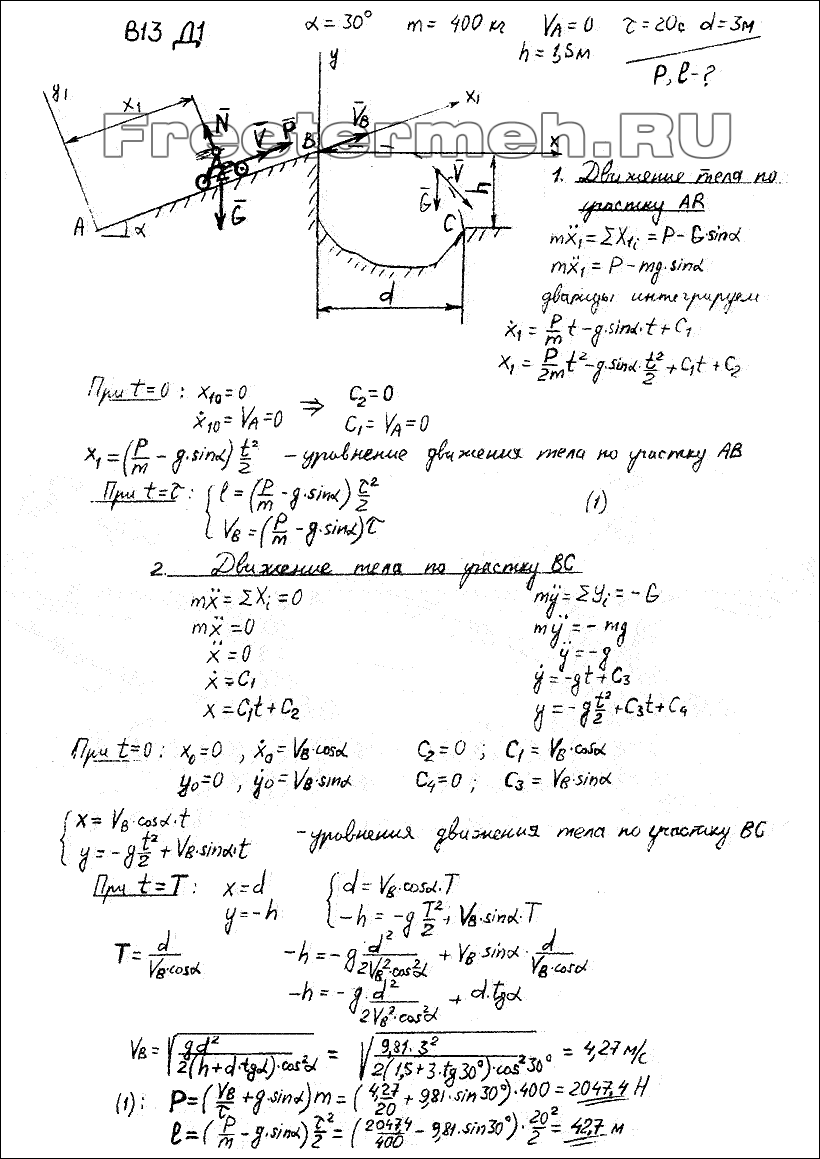 В13 Д1
α = 30° m = 400 кг V_A = 0 τ = 20с d = 3м
h = 1,5м
P, l - ?
y
y₁
x₁
x₁
N̄
V̄
P̄
B
V̄_B
x
Ḡ
A
α
V̄
Ḡ
h
C
d
Freetermeh.RU
1. Движение тела по
участку АВ
mẍ₁ = ΣX₁ᵢ = P - G·sinα
mẍ₁ = P - mg·sinα
дважды интегрируем
ẋ₁ = P/m t - g·sinα·t + C₁
x₁ = P/2m t² - g·sinα·t²/2 + C₁t + C₂
При t=0: x₁₀ = 0 ⇒ C₂ = 0
ẋ₁₀ = V_A = 0 C₁ = V_A = 0
x₁ = (P/m - g·sinα) t²/2 - уровнение движения тела по участку АВ
При t=τ: { l = (P/m - g·sinα) τ²/2 (1)
V_B = (P/m - g·sinα)τ
2. Движение тела по участку ВС
mẍ = ΣXᵢ = 0 mÿ = ΣYᵢ = -G
mẍ = 0 mÿ = -mg
ẍ = 0 ÿ = -g
ẋ = C₁ ẏ = -gt + C₃
x = C₁t + C₂ y = -g t²/2 + C₃t + C₄
При t=0: x₀ = 0, ẋ₀ = V_B·cosα C₂ = 0; C₁ = V_B·cosα
y₀ = 0, ẏ₀ = V_B·sinα C₄ = 0; C₃ = V_B·sinα
{ x = V_B·cosα·t
y = -g t²/2 + V_B·sinα·t - уровнения движения тела по участку ВС
При t=T: x = d { d = V_B·cosα·T
y = -h -h = -g T²/2 + V_B·sinα·T
T = d/(V_B·cosα) -h = -g d²/(2V_B²·cos²α) + V_B·sinα · d/(V_B·cosα)
-h = -g·d²/(2V_B²·cos²α) + d·tgα
V_B = √(gd²/(2(h+d·tgα)·cos²α)) = √(9,81·3²/(2(1,5+3·tg30°)·cos²30°)) = 4,27 м/с
(1): P = (V_B/τ + g·sinα)m = (4,27/20 + 9,81·sin30°)·400 = 2047,4 Н
l = (P/m - g·sinα) τ²/2 = (2047,4/400 - 9,81·sin30°)·20²/2 = 42,7 м